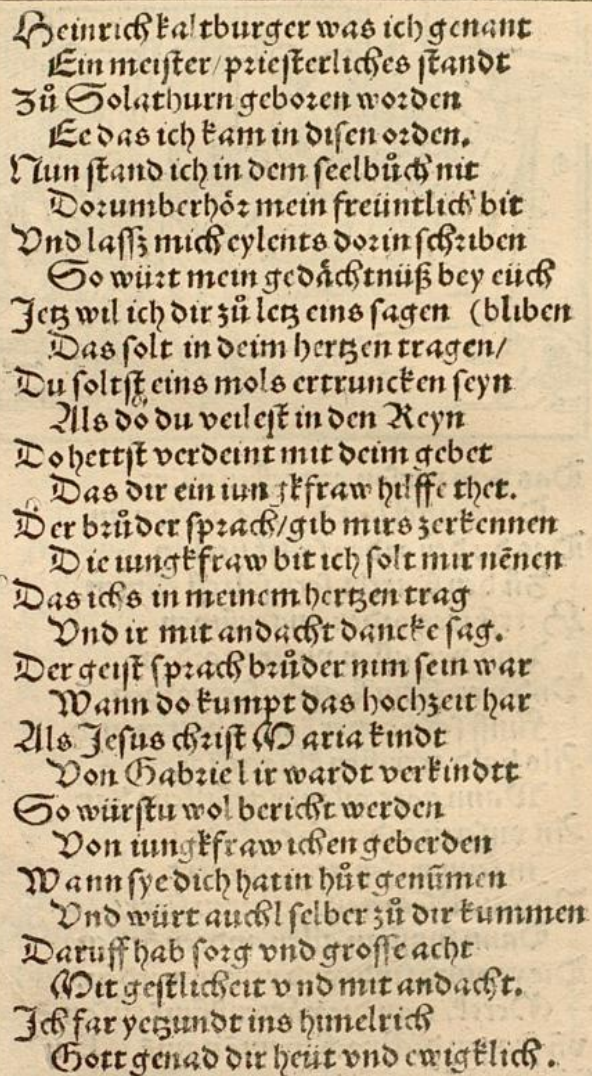 Heinrich kaltburger was ich genant
Ein meister/priesterliches standt
Zů Solathurn geboren worden
Ee das ich kam in disen orden.
Nun stand ich in dem seelbůch nit
Dorumb erhör mein freüntlich bit
Vnd lassz mich eylents dorin schriben
So würt mein gedächtnüß bey eüch
Jetz wil ich dir zů letz eins sagen (bliben
Das solt in deim hertzen tragen/
Du soltst eins mols ertruncken seyn
Als do du veilest in den Reyn
Do hettst verdeint mit deim gebet
Das dir ein iungkfraw hilffe thet.
Der brůder sprach/gib mirs zerkennen
Die iungkfraw bit ich solt mir nēnen
Das ichs in meinem hertzen trag
Vnd ir mit andacht dancke sag.
Der geist sprach brůder nim sein war
Wann do kumpt das hochzeit har
Als Jesus christ Maria kindt
Von Gabriel ir wardt verkindtt
So würstu wol bericht werden
Von iungkfrawichen geberden
Wann sye dich hat in hůt genūmen
Vnd würt auchl selber zů dir kummen
Daruff hab sorg vnd grosse acht
Mit gestlicheit vnd mit andacht.
Ich far yetzundt ins himelrich
Gott genad dir heüt vnd ewigklich.